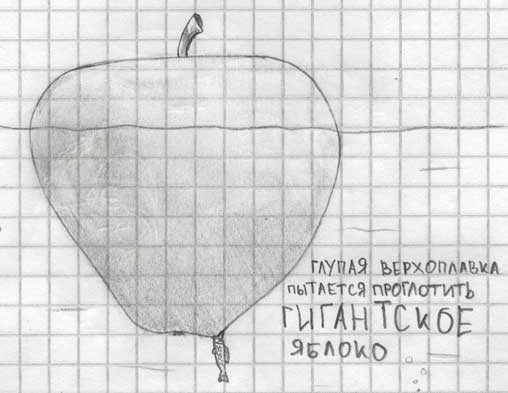 ГЛУПАЯ ВЕРХОПЛАВКА
ПЫТАЕТСЯ ПРОГЛОТИТЬ
ГИГАНТСКОЕ
ЯБЛОКО